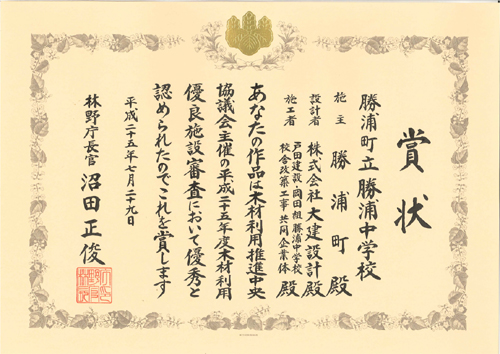 賞状
勝浦町立勝浦中学校
施主 勝浦町殿
設計者 株式会社大建設計殿
施工者 戸田建設・岡田組勝浦中学校
校舎改築工事共同企業体殿
あなたの作品は木材利用推進中央
協議会主催の平成二十五年度木材利用
優良施設審査において優秀と
認められたのでこれを賞します
平成二十五年七月二十九日
林野庁長官 沼田正俊